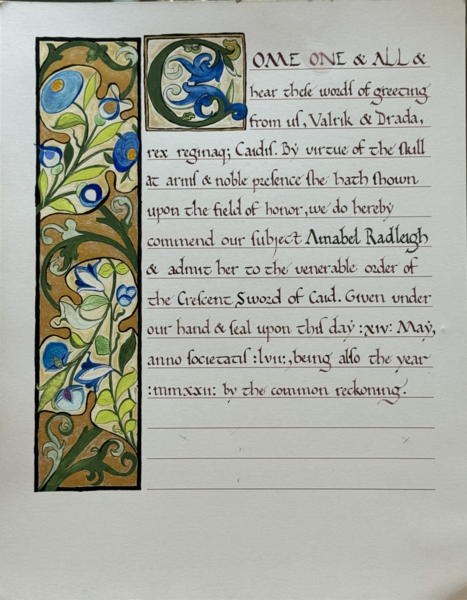 COME ONE & ALL &
hear these words of greeting
from us, Valrik & Drada,
rex reginaq; Caidis. By virtue of the skill
at arms & noble presence she hath shown
upon the field of honor, we do hereby
commend our subject Annabel Radleigh
& admit her to the venerable order of
the Crescent Sword of Caid. Given under
our hand & seal upon this day :xiv: May,
anno societatis :lvii:, being also the year
:mmxxii: by the common reckoning.